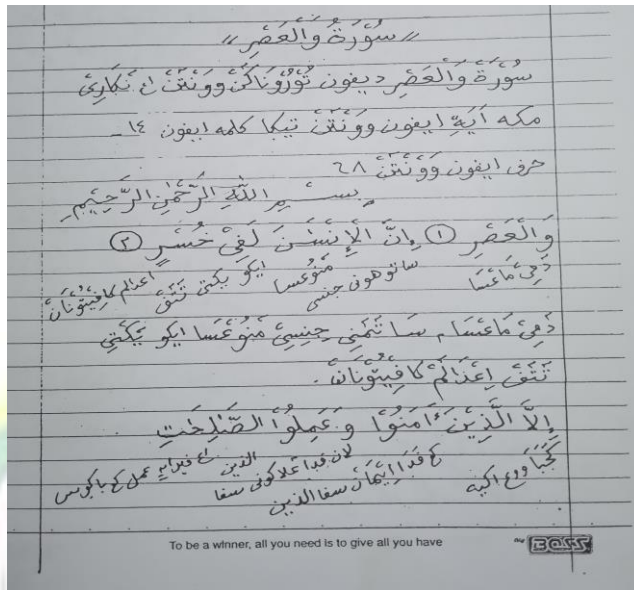 «سُوْرَةُ وَالْعَصْرِ»
سُوْرَةُ وَالْعَصْرِ ديفون تُوْرُوْنَاكَنْ وونتن اڠ نَڮَارِيْ
مكه اَيَةِ ايفون وونتن تيڮا كلمه ايفون ١٤ -
حرف ايفون وونتن ٦٨
بِسْــمِ اللّٰهِ الرَّحْمٰنِ الرَّحِيْمِ
وَالْعَصْرِ ١ اِنَّ الْاِنْسٰنَ لَفِيْ خُسْرٍ ٢
دَمِيْ مَاعْسَا ساتوهوني جنسى مَنُوعْسا ايكو يكتي تَتَفْ اعدالم كافِيْتُوْنَانْ
دَمِيْ مَاعْسَا، سَاتَمَنِيْ جِنِسِيْ مَنُوْعْسَا ايكو يَكْتِيْ
تَتَفْ اِعْدَالَمْ كَافِيْتُوْنَانْ.
اِلَّا الَّذِيْنَ ءَامَنُوْا وَعَمِلُوا الصّٰلِحٰتِ
كَجَبَا ووع اكيه كع فَدَا اِيْمَانْ سفا الذين لان فدا علاكوني سفا الذين عمل كع باكوس
To be a winner, all you need is to give all you have
BOSS